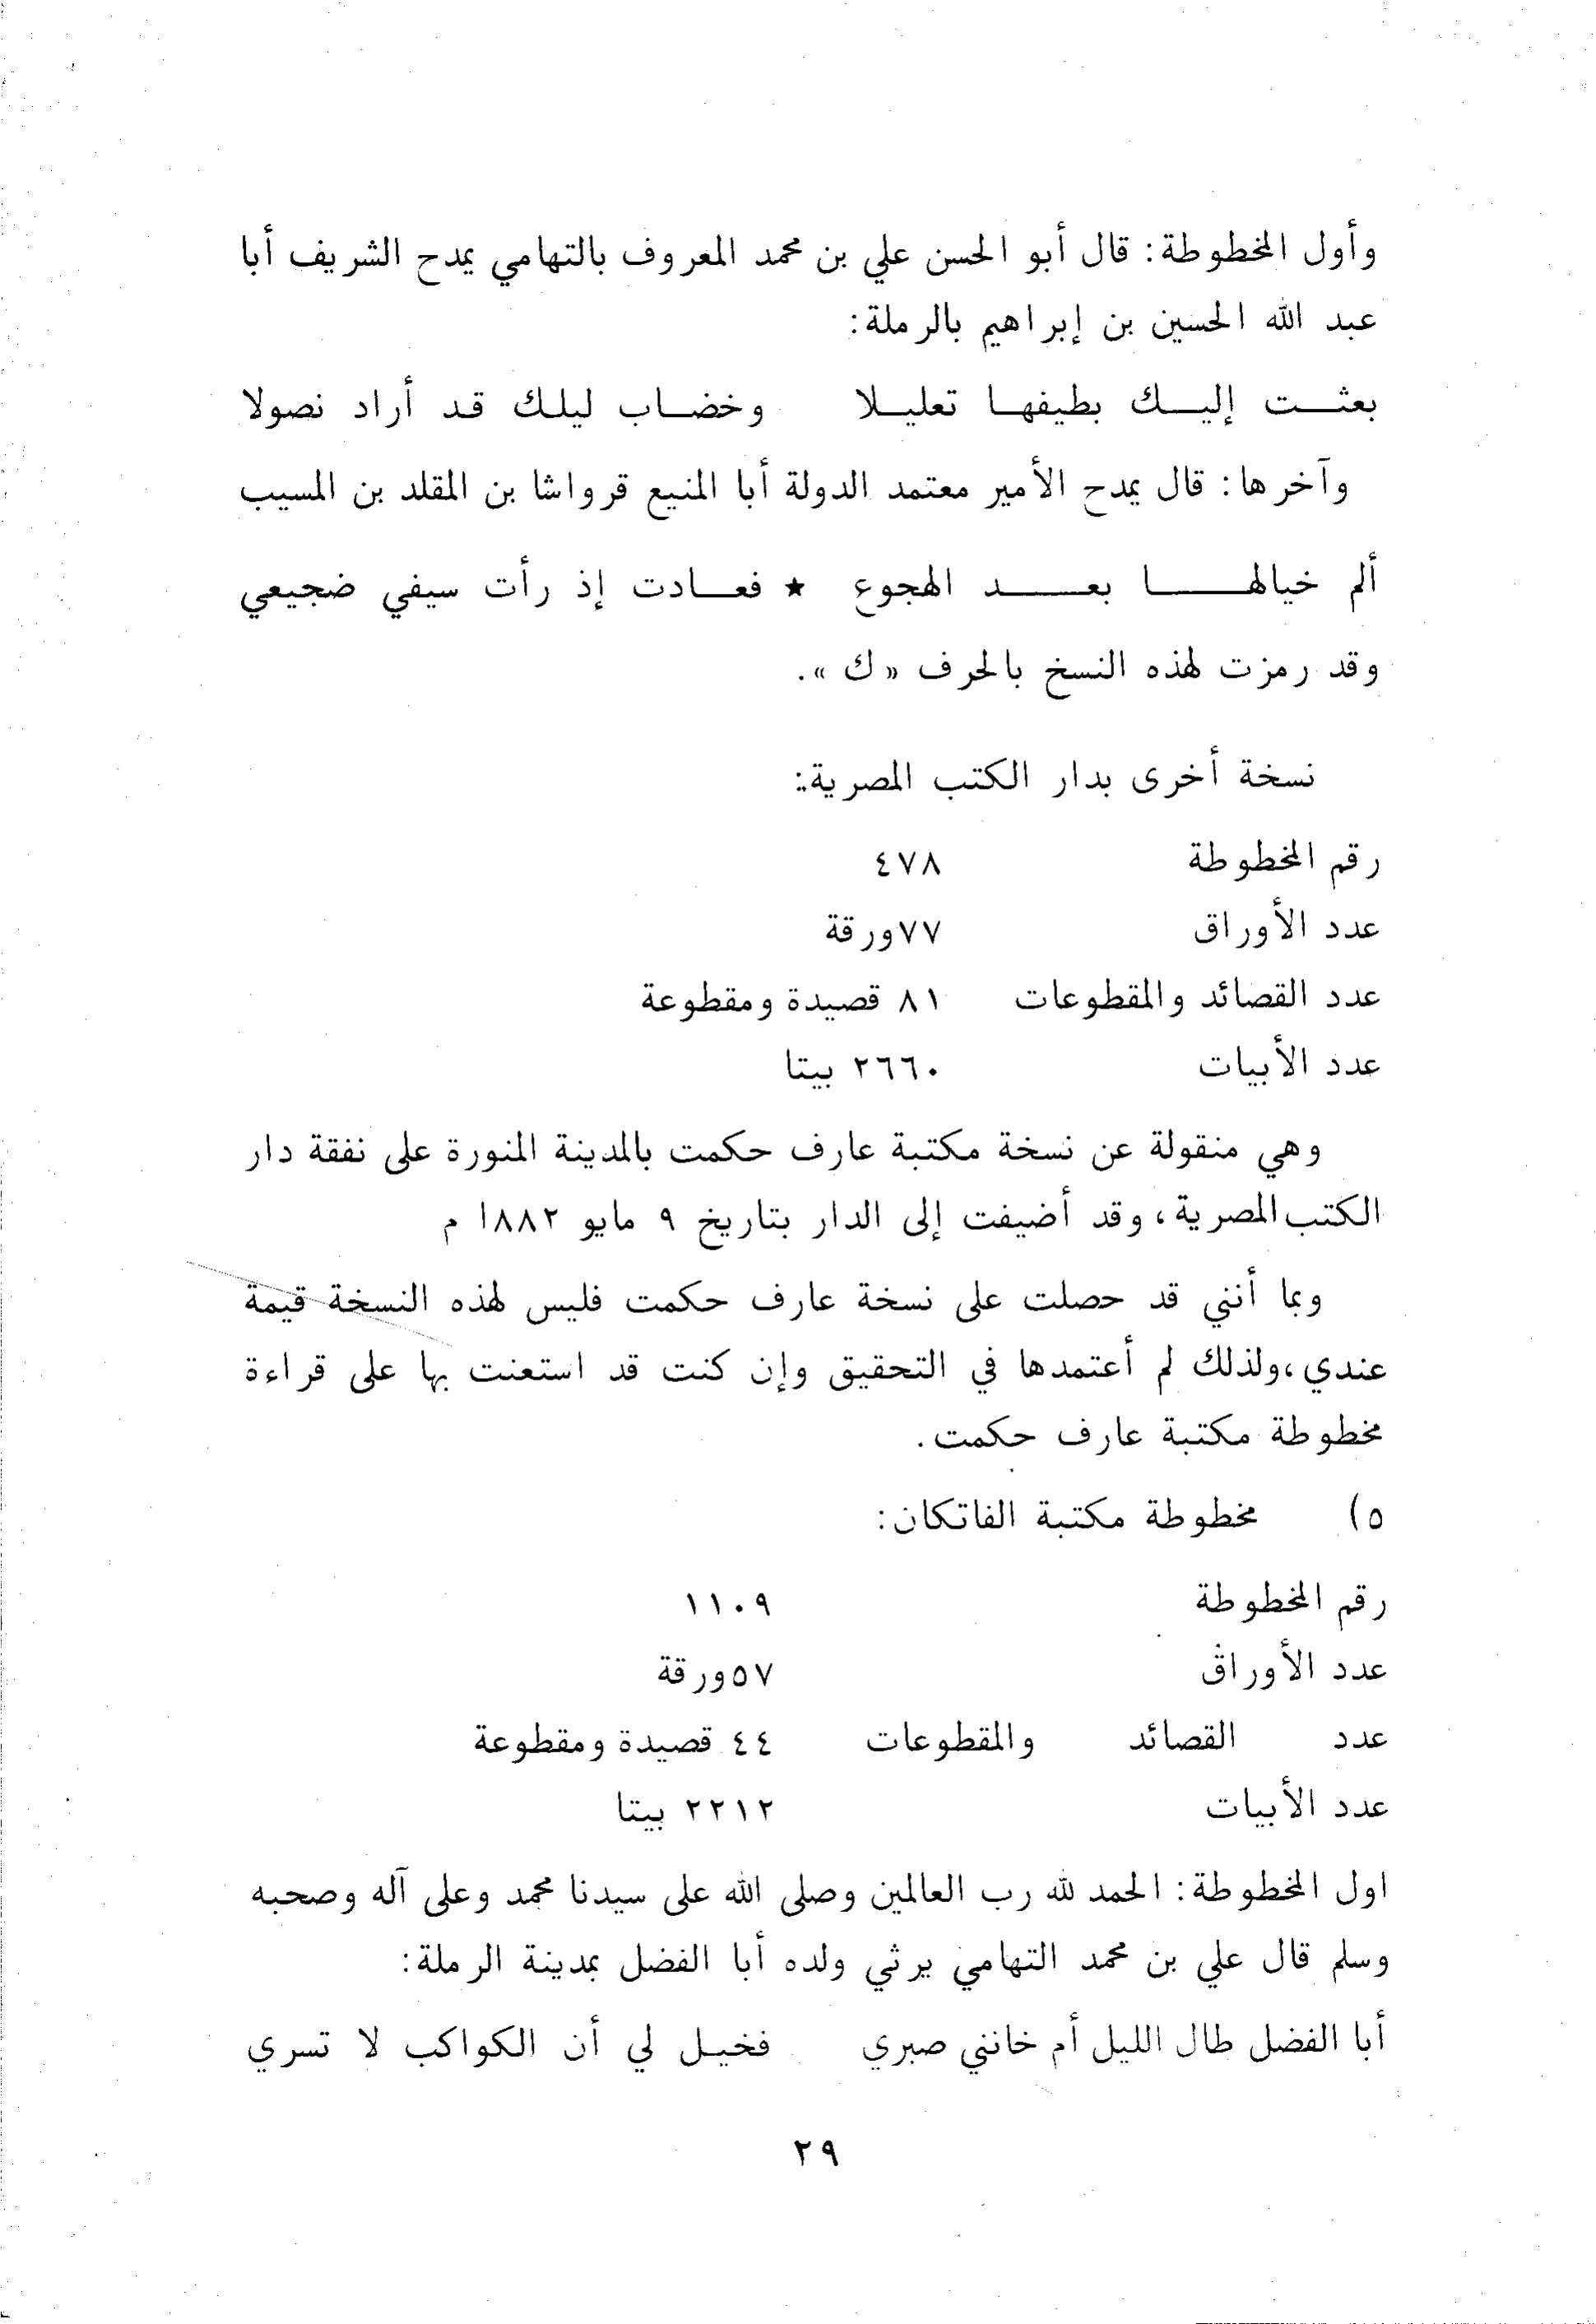 وأول المخطوطة: قال أبو الحسن علي بن محمد المعروف بالتهامي يمدح الشريف أبا
عبد الله الحسين بن إبراهيم بالرملة:
بعثـــت إليـــك بطيفهـا تعليـلا وخضـاب ليلـك قـد أراد نصولا
وآخرها: قال يمدح الأمير معتمد الدولة أبا المنيع قرواشا بن المقلد بن المسيب
ألم خيالهـــــا بعـــــد الهجوع ★ فعـــادت إذ رأت سيفي ضجيعي
وقد رمزت لهذه النسخ بالحرف «ك».
نسخة أخرى بدار الكتب المصرية:
رقم المخطوطة ٤٧٨
عدد الأوراق ٧٧ورقة
عدد القصائد والمقطوعات ٨١ قصيدة ومقطوعة
عدد الأبيات ٢٦٦٠ بيتا
وهي منقولة عن نسخة مكتبة عارف حكمت بالمدينة المنورة على نفقة دار
الكتب المصرية، وقد أضيفت إلى الدار بتاريخ ٩ مايو ١٨٨٢ م
وبما أنني قد حصلت على نسخة عارف حكمت فليس لهذه النسخة قيمة
عندي،ولذلك لم أعتمدها في التحقيق وإن كنت قد استعنت بها على قراءة
مخطوطة مكتبة عارف حكمت.
٥) مخطوطة مكتبة الفاتكان:
رقم المخطوطة ١١٠٩
عدد الأوراق ٥٧ورقة
عدد القصائد والمقطوعات ٤٤ قصيدة ومقطوعة
عدد الأبيات ٢٢١٢ بيتا
اول المخطوطة: الحمد لله رب العالمين وصلى الله على سيدنا محمد وعلى آله وصحبه
وسلم قال علي بن محمد التهامي يرثي ولده أبا الفضل بمدينة الرملة:
أبا الفضل طال الليل أم خانني صبري فخيـل لي أن الكواكب لا تسري
٢٩